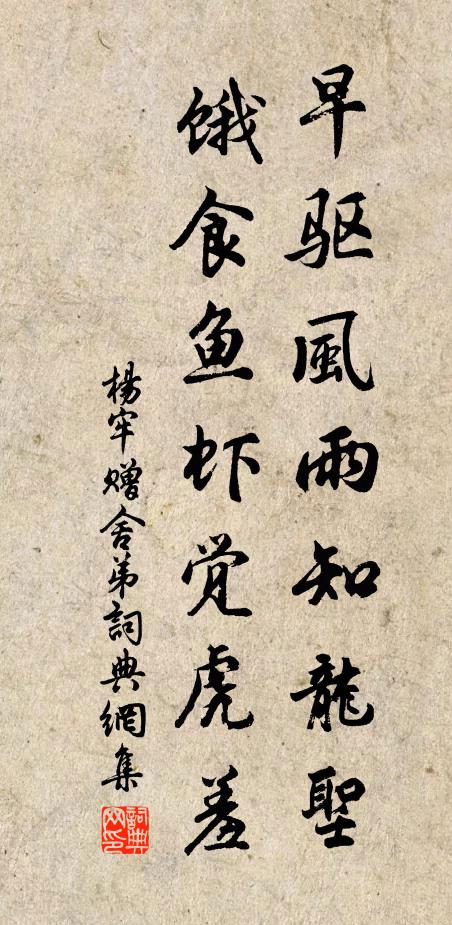 早驱風雨知龍聖
餓食鱼虾觉虎羞
楊牢赠舍弟詞典網集
詞典網印